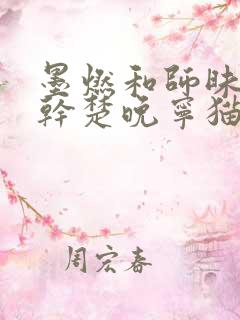 墨燃和師昧
幹楚晚寧猫
周宏春